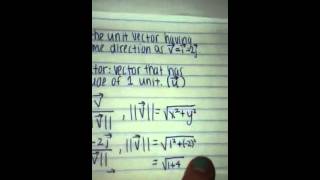 the unit vector having
me direction as v⃗=i⃗-2j⃗
tor: vector that has
ude of 1 unit. (u⃗)
v⃗
||v⃗|| , ||v⃗|| = √x²+y²
-2j⃗
||v⃗|| , ||v⃗|| = √1²+(-2)²
= √1+4